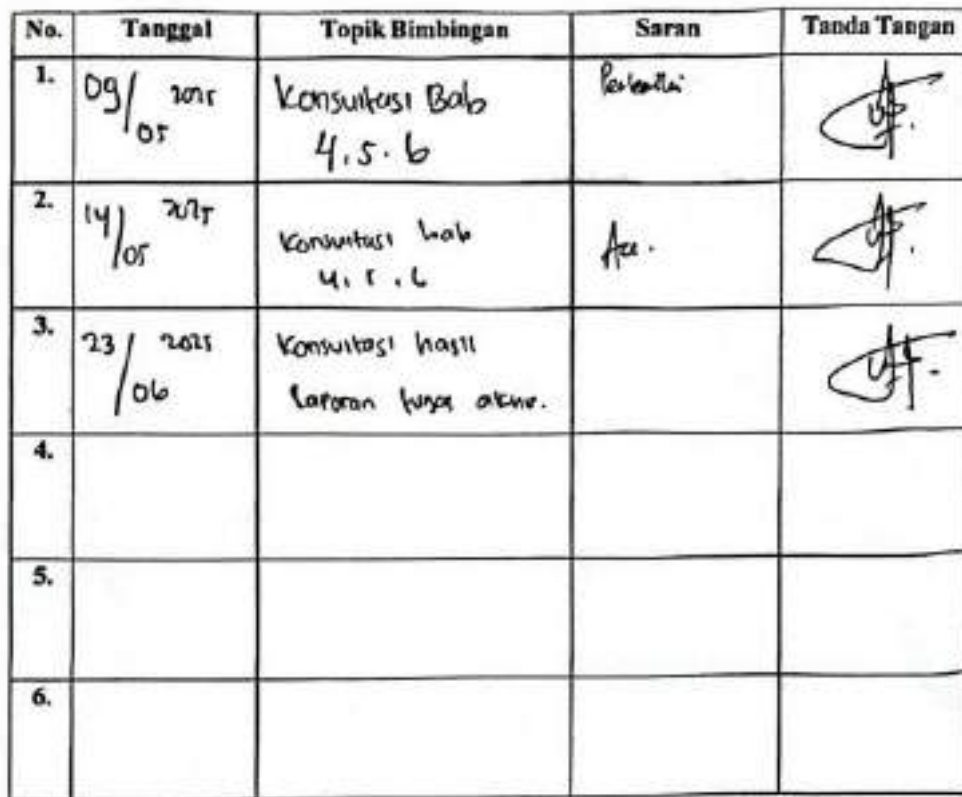 No. Tanggal Topik Bimbingan Saran Tanda Tangan
1. 09/05 2025 Konsultasi Bab
4.5.6
2. 14/05 2025 Konsultasi bab Acc.
4.5.6
3. 23/06 2025 Konsultasi hasil
laporan tugas akhir.
4.
5.
6.